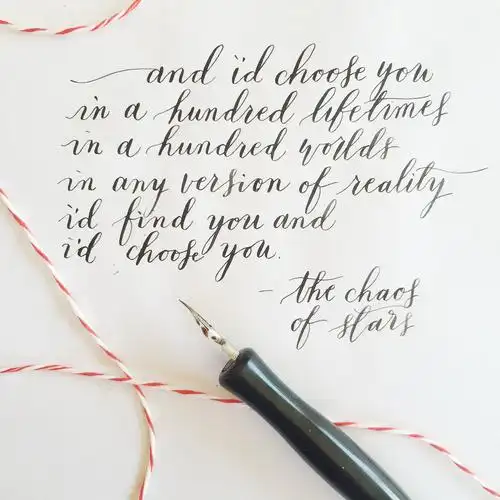 and i'd choose you
in a hundred lifetimes
in a hundred worlds
in any version of reality
i'd find you and
i'd choose you.
- the chaos
of stars